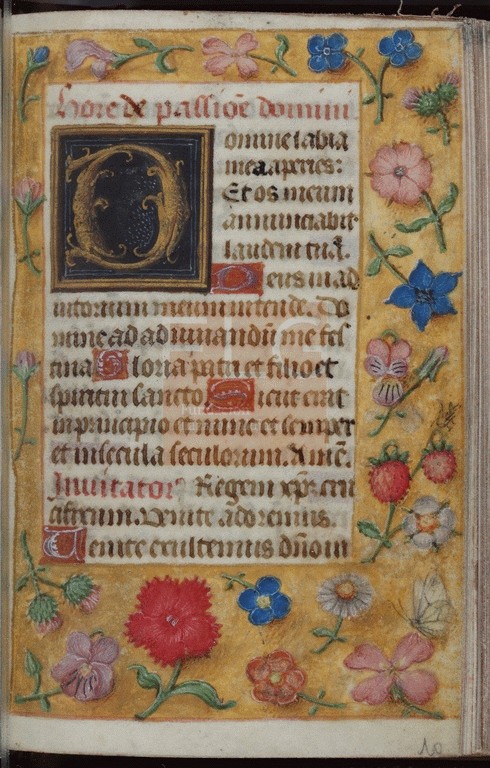 Hore de passiōe domini
Domine labia
mea aperies:
Et os meum
annunciabit
laudem tuā.
Deus in ad
iutorium meum intende. Do
mine ad adiuuandū me fes
tina Gloria patri et filio et
spiritui sancto. Sicut erat
in principio et nunc et semper
et in secula seculorum. Amē.
Inuitator Regem xp̄m cru
cifixum. Venite adoremus.
Uenite exultemus dn̄o in
10